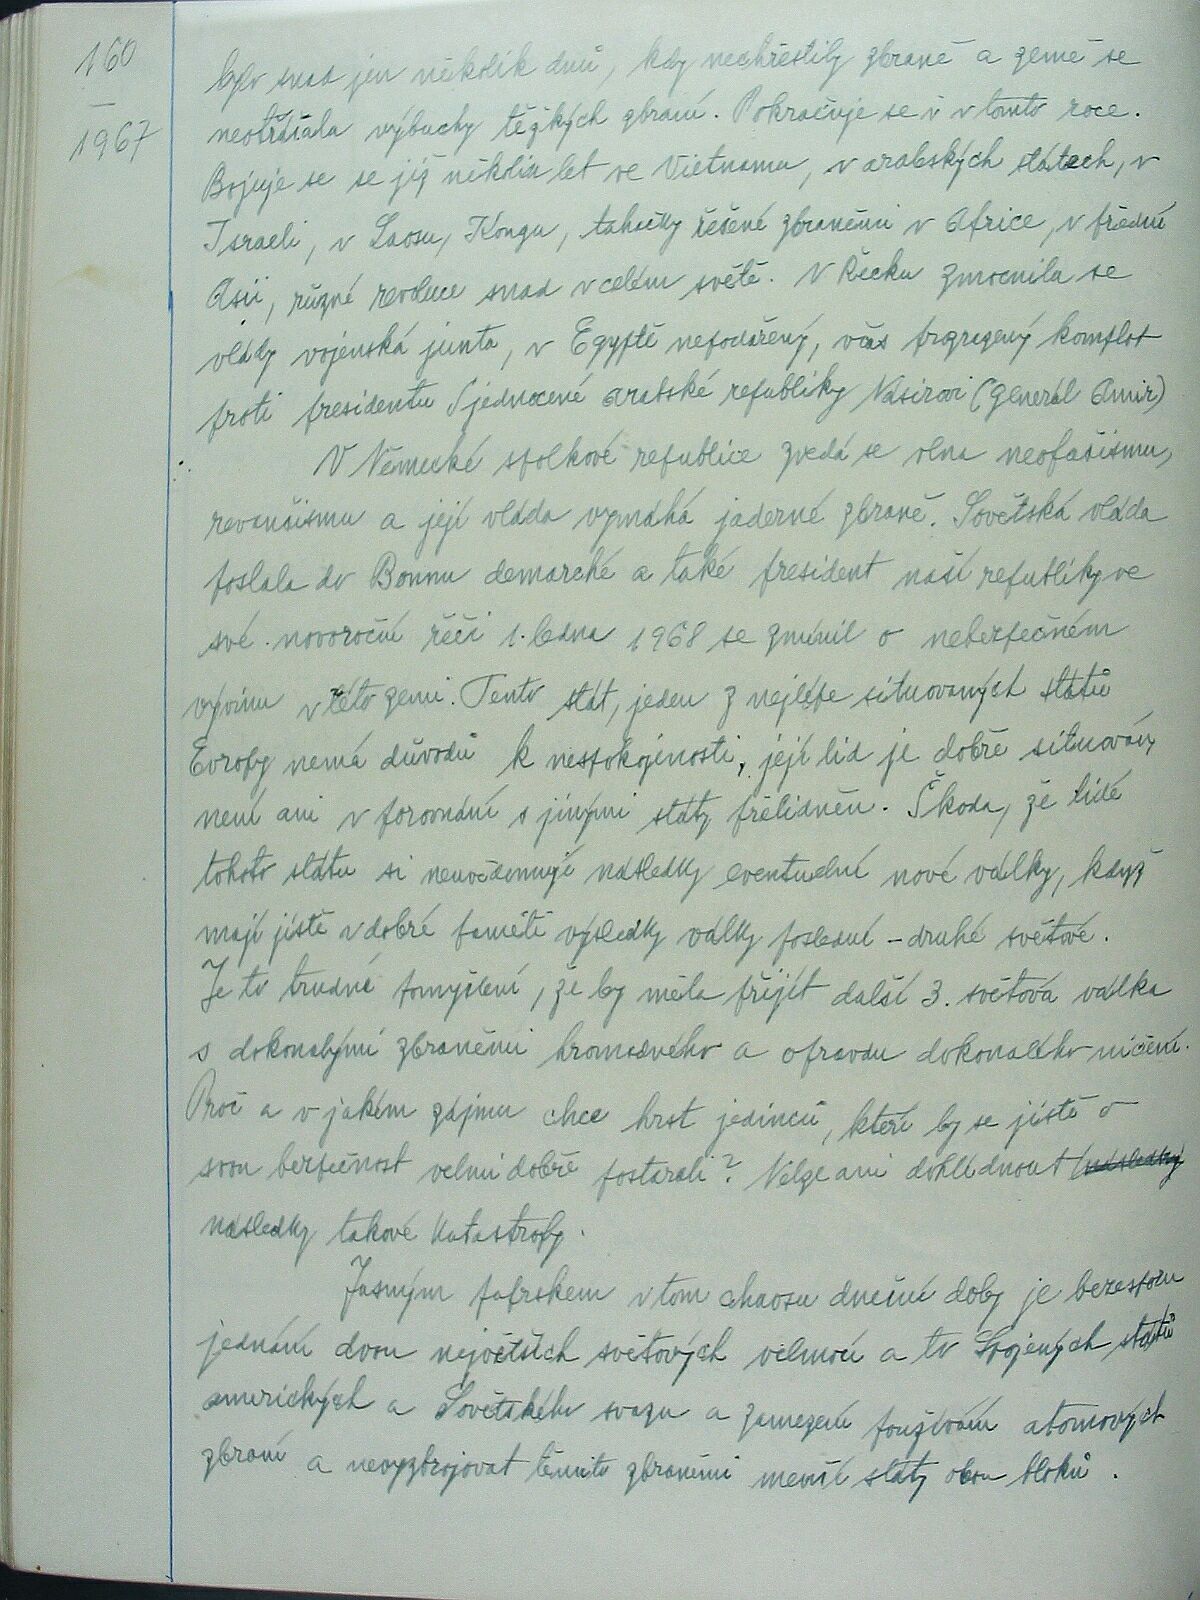 160
—
1967
bylo snad jen několik dnů, kdy nechřestily zbraně a země se
neotřásala výbuchy těžkých zbraní. Pokračuje se i v tomto roce.
Bojuje se se již několik let ve Vietnamu, v arabských státech, v
Israeli, v Laosu, Kongu, tahačky řešené zbraněmi v Africe, v přední
Asii, různé revoluce snad v celém světě. V Řecku zmocnila se
vlády vojenská junta, v Egyptě nepodařený, včas prozrazený komplot
proti presidentu Sjednocené arabské republiky Násirovi (generál Amir)
V Německé spolkové republice zvedá se vlna neofašismu,
revanšismu a její vláda vymáhá jaderné zbraně. Sovětská vláda
poslala do Bonnu demarché a také president naší republiky ve
své novoroční řeči 1. ledna 1968 se zmínil o nebezpečném
vývinu v této zemi. Tento stát, jeden z nejlépe situovaných států
Evropy nemá důvodů k nespokojenosti, její lid je dobře situován,
není ani v porovnání s jinými státy přelidněn. Škoda, že lidé
tohoto státu si neuvědomují následky eventuelní nové války, když
mají jistě v dobré paměti výsledky války poslední – druhé světové.
Je to trudné pomyšlení, že by měla přijít další 3. světová válka
s dokonalými zbraněmi hromadného a opravdu dokonalého ničení.
Proč a v jakém zájmu chce hrst jedinců, kteří by se jistě o
svou bezpečnost velmi dobře postarali? Nelze ani dohlédnout následky
následky takové katastrofy.
Jasným paprskem v tom chaosu dnešní doby je bezesporu
jednání dvou největších světových velmocí a to Spojených států
amerických a Sovětského svazu a zamezení používání atomových
zbraní a nevyzbrojovat těmito zbraněmi menší státy obou bloků.